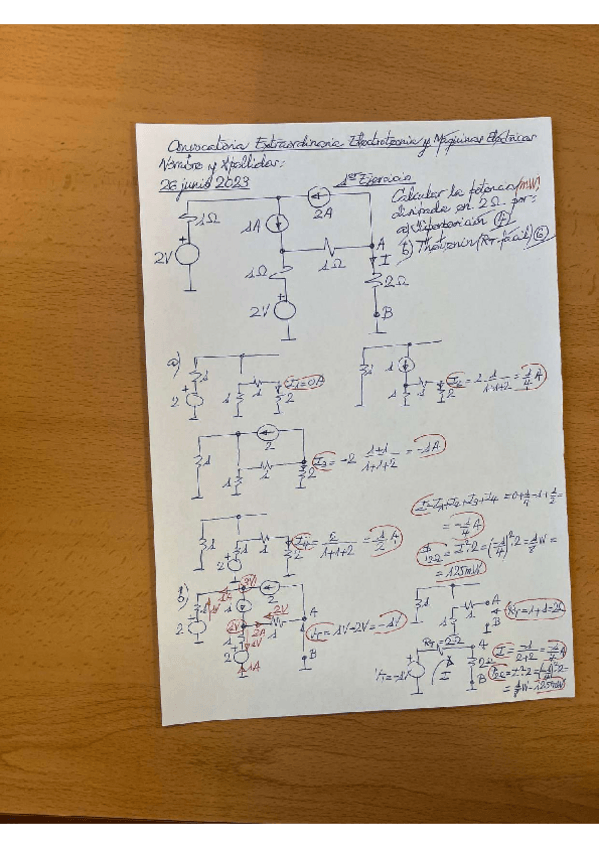 Convocatoria Extraordinaria Electrotecnia y Máquinas Eléctricas
Nombre y Apellidos:
26 junio 2023
1er Ejercicio
Calcular la potencia (mW)
disipada en 2Ω por:
a) Superposición (4)
b) Thevenin (RT fácil) (6)
1Ω
1A
2A
2V
1Ω
A
I
1Ω
2Ω
2V
B
a)
1
2
1
1
2
I1=0A
1
1
1
1
2
I2=1·1/(1+1+2)=1/4 A
1
2
1
1
2
I3=-2 (1+1)/(1+1+2)=-1A
I=I1+I2+I3+I4=0+1/4-1+1/2=
=-1/4 A
1
1
1
2
2
I4=2/(1+1+2)=1/2 A
P2Ω=I²·2=(-1/4)²·2=1/8 W=
=125mW
b)
2
1
1
2
1
1
2
2V
2A
1V
1A
A
B
VT=1V-2V=-1V
1
1
1
A
B
RT=1+1=2Ω
RT=2Ω
A
VT=-1V
I
2Ω
B
I=-1/(2+2)=-1/4 A
P2Ω=I²·2=(-1/4)²·2=
=1/8 W=125mW